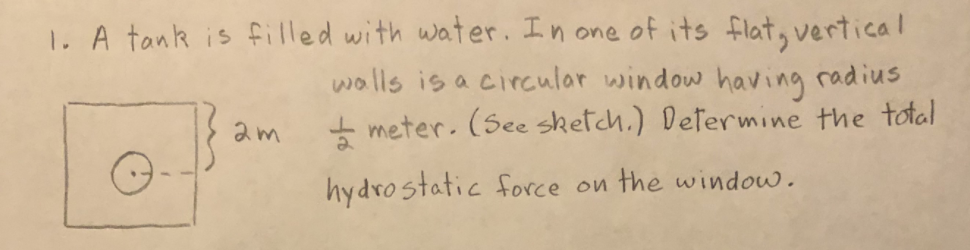 1. A tank is filled with water. In one of its flat, vertical
walls is a circular window having radius
2m
1/2 meter. (See sketch.) Determine the total
hydrostatic force on the window.